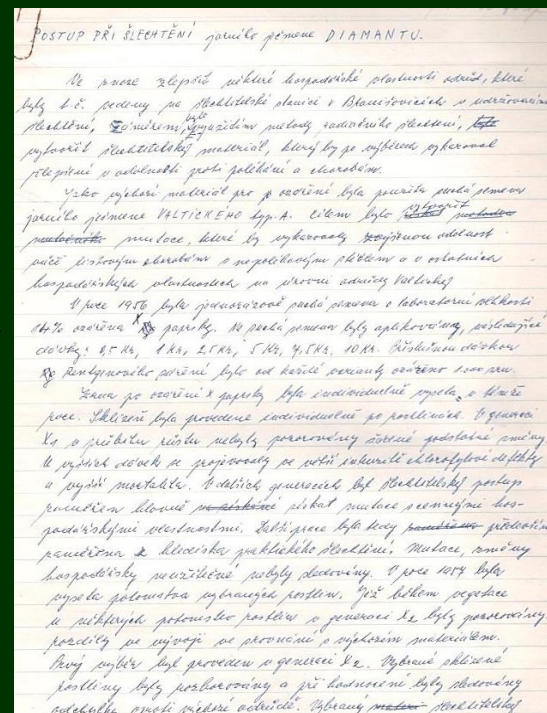 POSTUP PŘI ŠLECHTĚNÍ jarního ječmene DIAMANTU.
Ve snaze zlepšit některé hospodářské vlastnosti odrůd, které
byly t.č. vedeny na šlechtitelské stanici v Branišovicích v udržovacím
šlechtění, záměrem bylo využitím metody radiačního šlechtění,
vytvořit šlechtitelský materiál, který by po výběrech vykazoval
zlepšení v odolnosti proti poléhání a chorobám.
Jako výchozí materiál pro ozáření byla použita suchá semena
jarního ječmene VALTICKÉHO typ. A. Cílem bylo vytvořit
mutace, které by vykazovaly zvýšenou odolnost
vůči listovým chorobám s nepoléhavým stéblem a v ostatních
hospodářských vlastnostech na úrovni odrůdy Valtický
V roce 1956 byla jednorázově suchá semena o laboratorní vlhkosti
14% ozářena X paprsky. Na suchá semena byly aplikovány, následující
dávky: 0,5 Kr, 1 Kr, 2,5 Kr, 5 Kr, 7,5 Kr, 10 Kr. Příslušnou dávkou
Rentgenového záření bylo od každé varianty ozářeno 1000 zrn.
Zrna po ozáření X paprsky byla individuelně vyseta v témže
roce. Sklizeň byla provedena individuelně po rostlinách. V generaci
X1 v průběhu růstu nebyly pozorovány podstatné změny
U vyšších dávek se projevovaly ve větší intenzitě chlorofylové defekty
a vyšší mortalita. V dalších generacích byl šlechtitelský postup
zaměřen hlavně získat mutace s cennými hos-
podářskými vlastnostmi. Další práce byla tedy především
zaměřena z hlediska praktického šlechtění. Mutace, změny
hospodářsky neužitečné nebyly sledovány. V roce 1957 byla
vyseta potomstva vybraných rostlin. Již během vegetace
u některých potomstev rostlin v generaci X2 byly pozorovány
rozdíly ve vývoji ve srovnání s výchozím materiálem.
Prvý výběr byl proveden v generaci X2. Vybrané sklizené
rostliny byly rozborovány a při hodnocení byly sledovány
odchylky oproti výchozí odrůdě. Vybraný šlechtitelský